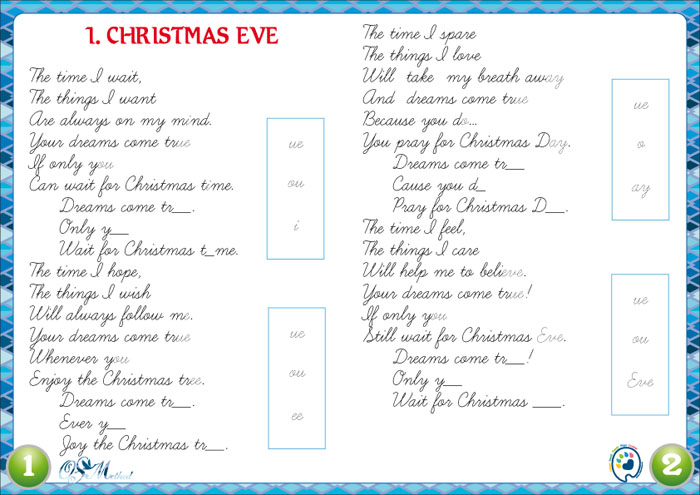 1. CHRISTMAS EVE
The time I wait,
The things I want
Are always on my mind.
Your dreams come true
If only you
Can wait for Christmas time.
Dreams come tr__.
Only y__
Wait for Christmas t_me.
ue
ou
i
The time I hope,
The things I wish
Will always follow me.
Your dreams come true
Whenever you
Enjoy the Christmas tree.
Dreams come tr__.
Ever y__
Joy the Christmas tr__.
ue
ou
ee
1
The time I spare
The things I love
Will take my breath away
And dreams come true
Because you do...
You pray for Christmas Day.
Dreams come tr__
Cause you d_
Pray for Christmas D__.
ue
o
ay
The time I feel,
The things I care
Will help me to believe.
Your dreams come true!
If only you
Still wait for Christmas Eve.
Dreams come tr__!
Only y__
Wait for Christmas ___.
ue
ou
Eve
2